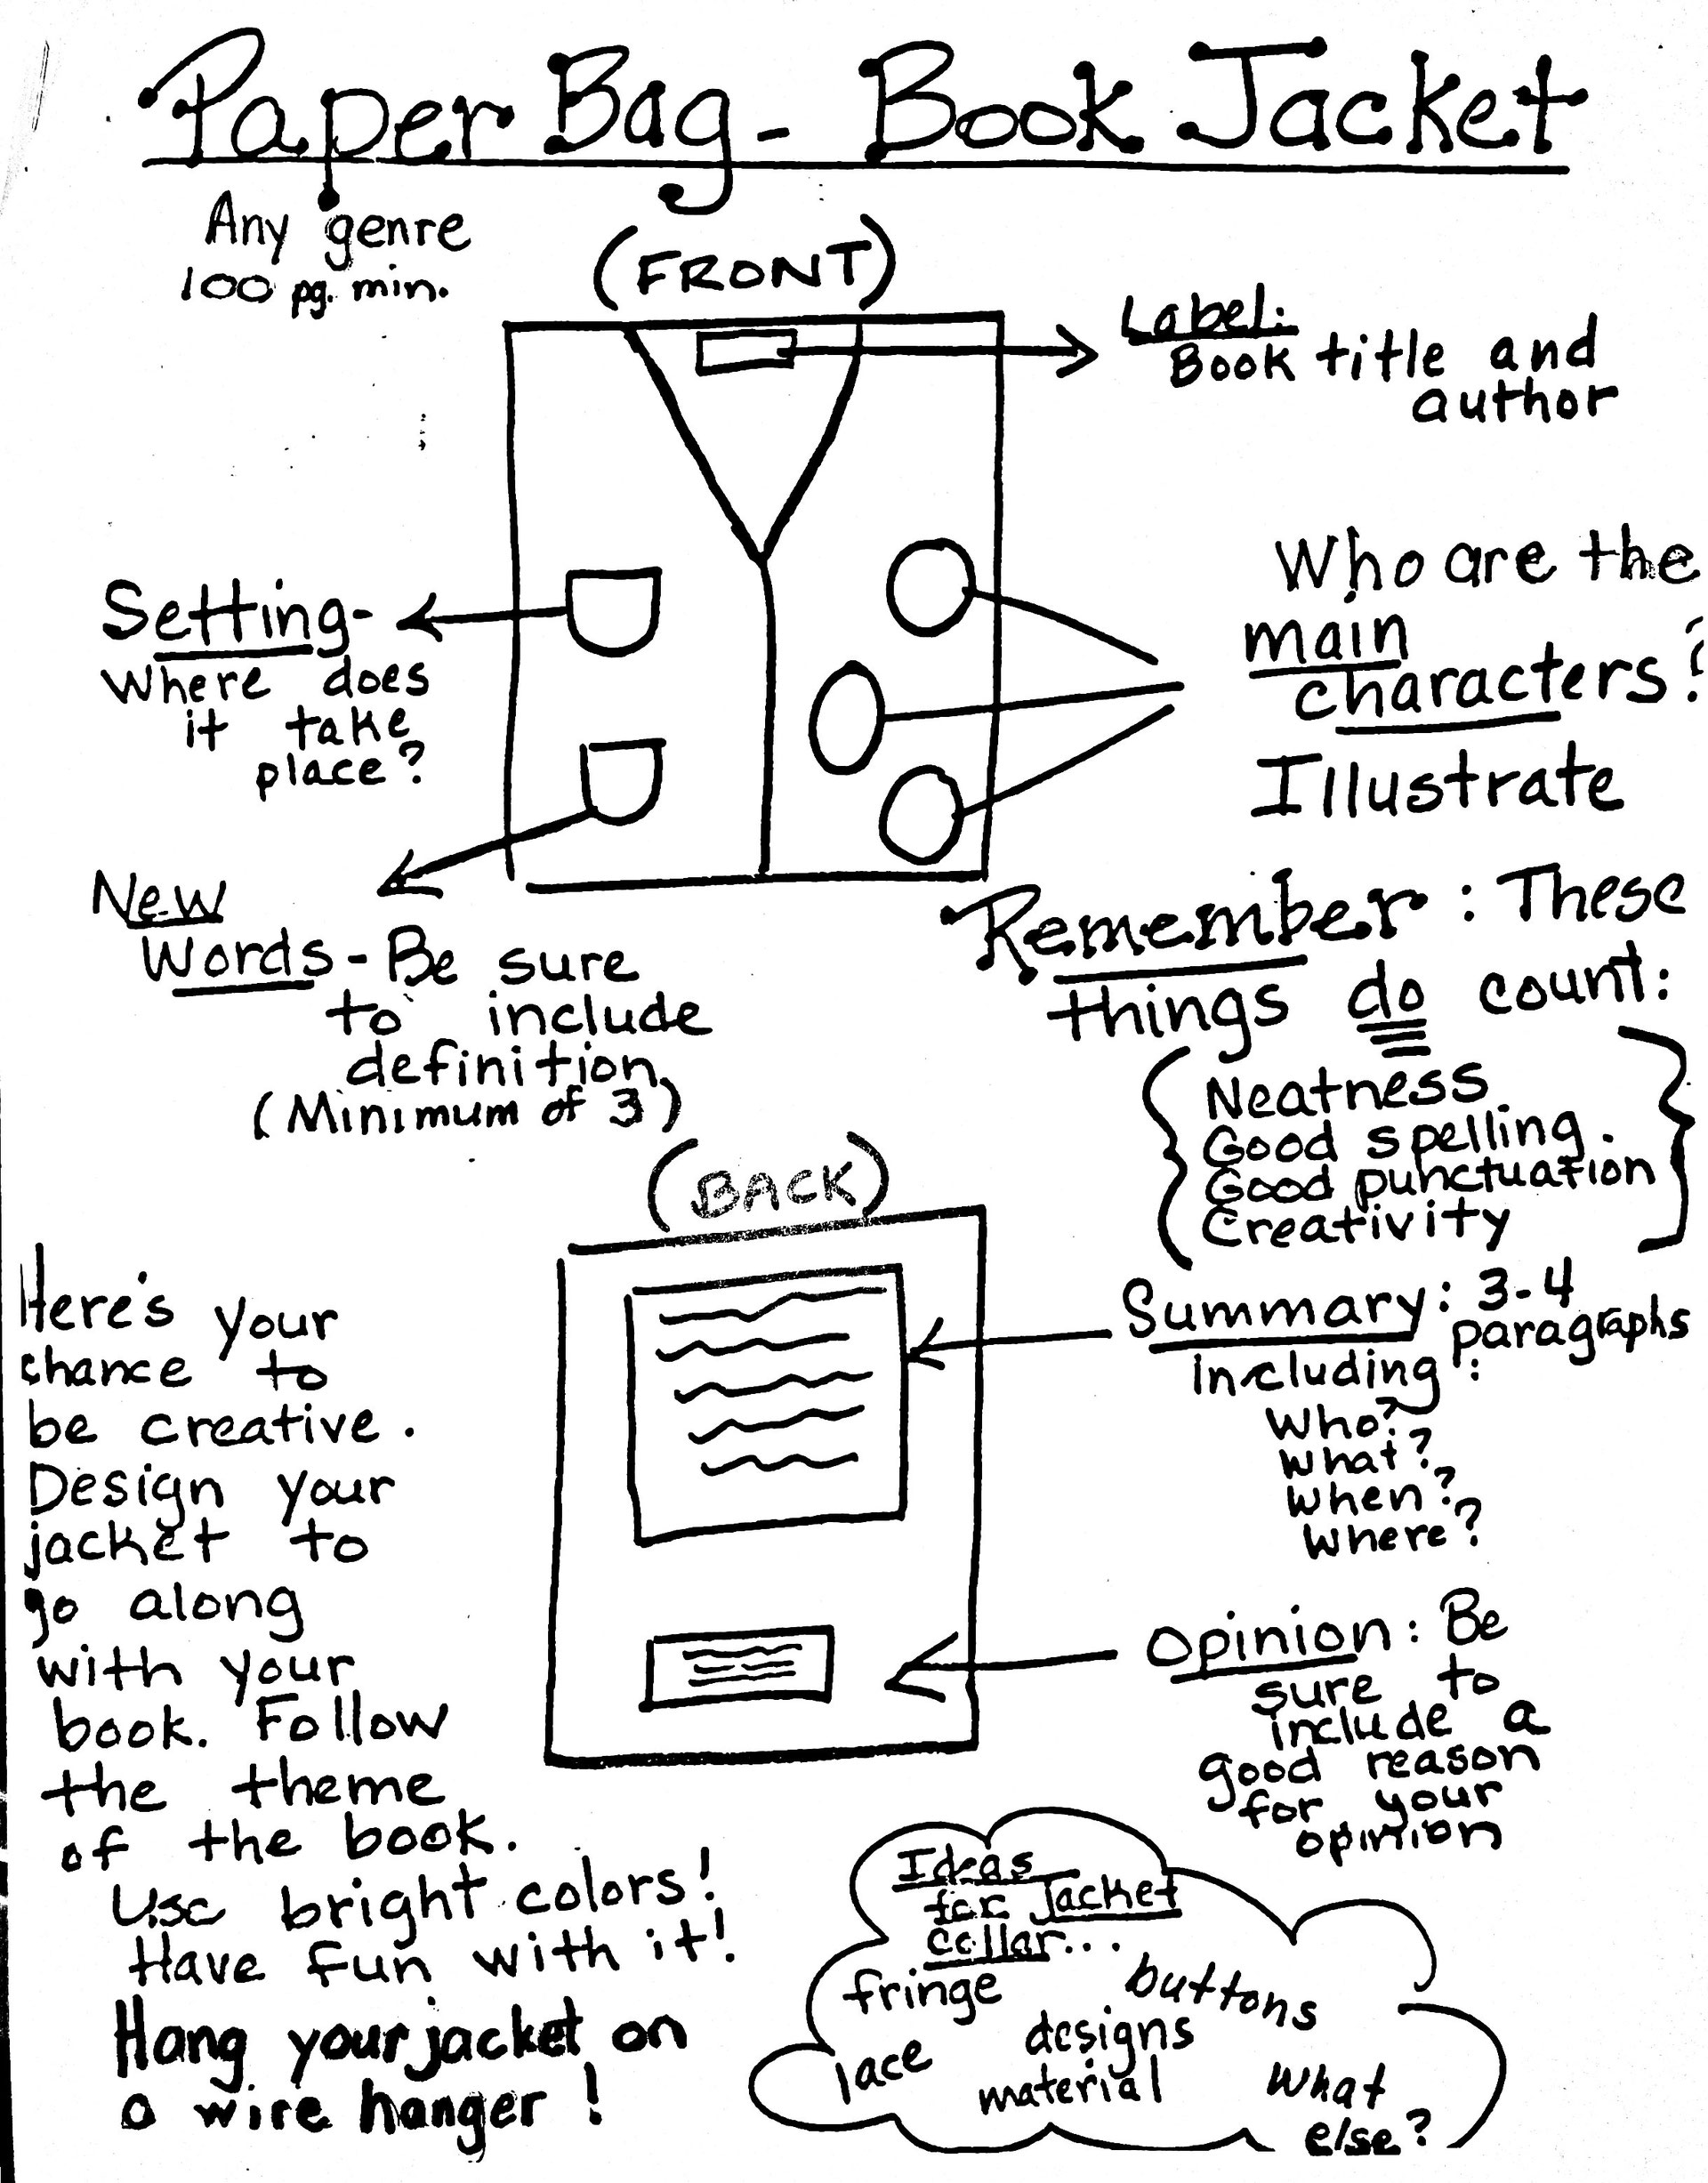 Paper Bag - Book Jacket
Any genre
100 pg. min.
(FRONT)
Label:
Book title and
author
Setting-
Where does
it take
place?
Who are the
main
characters?
Illustrate
New
Words - Be sure
to include
definition
(Minimum of 3)
Remember: These
things do count:
Neatness
Good spelling.
Good punctuation
Creativity
(BACK)
Summary: 3-4
paragraphs
including:
Who?
What?
When?
Where?
Opinion: Be
sure to
include a
good reason
for your
opinion
Here's your
chance to
be creative.
Design your
jacket to
go along
with your
book. Follow
the theme
of the book.
Use bright colors!
Have fun with it!
Hang your jacket on
a wire hanger!
Ideas
for Jacket
Collar...
fringe
buttons
designs
lace
material
what
else?